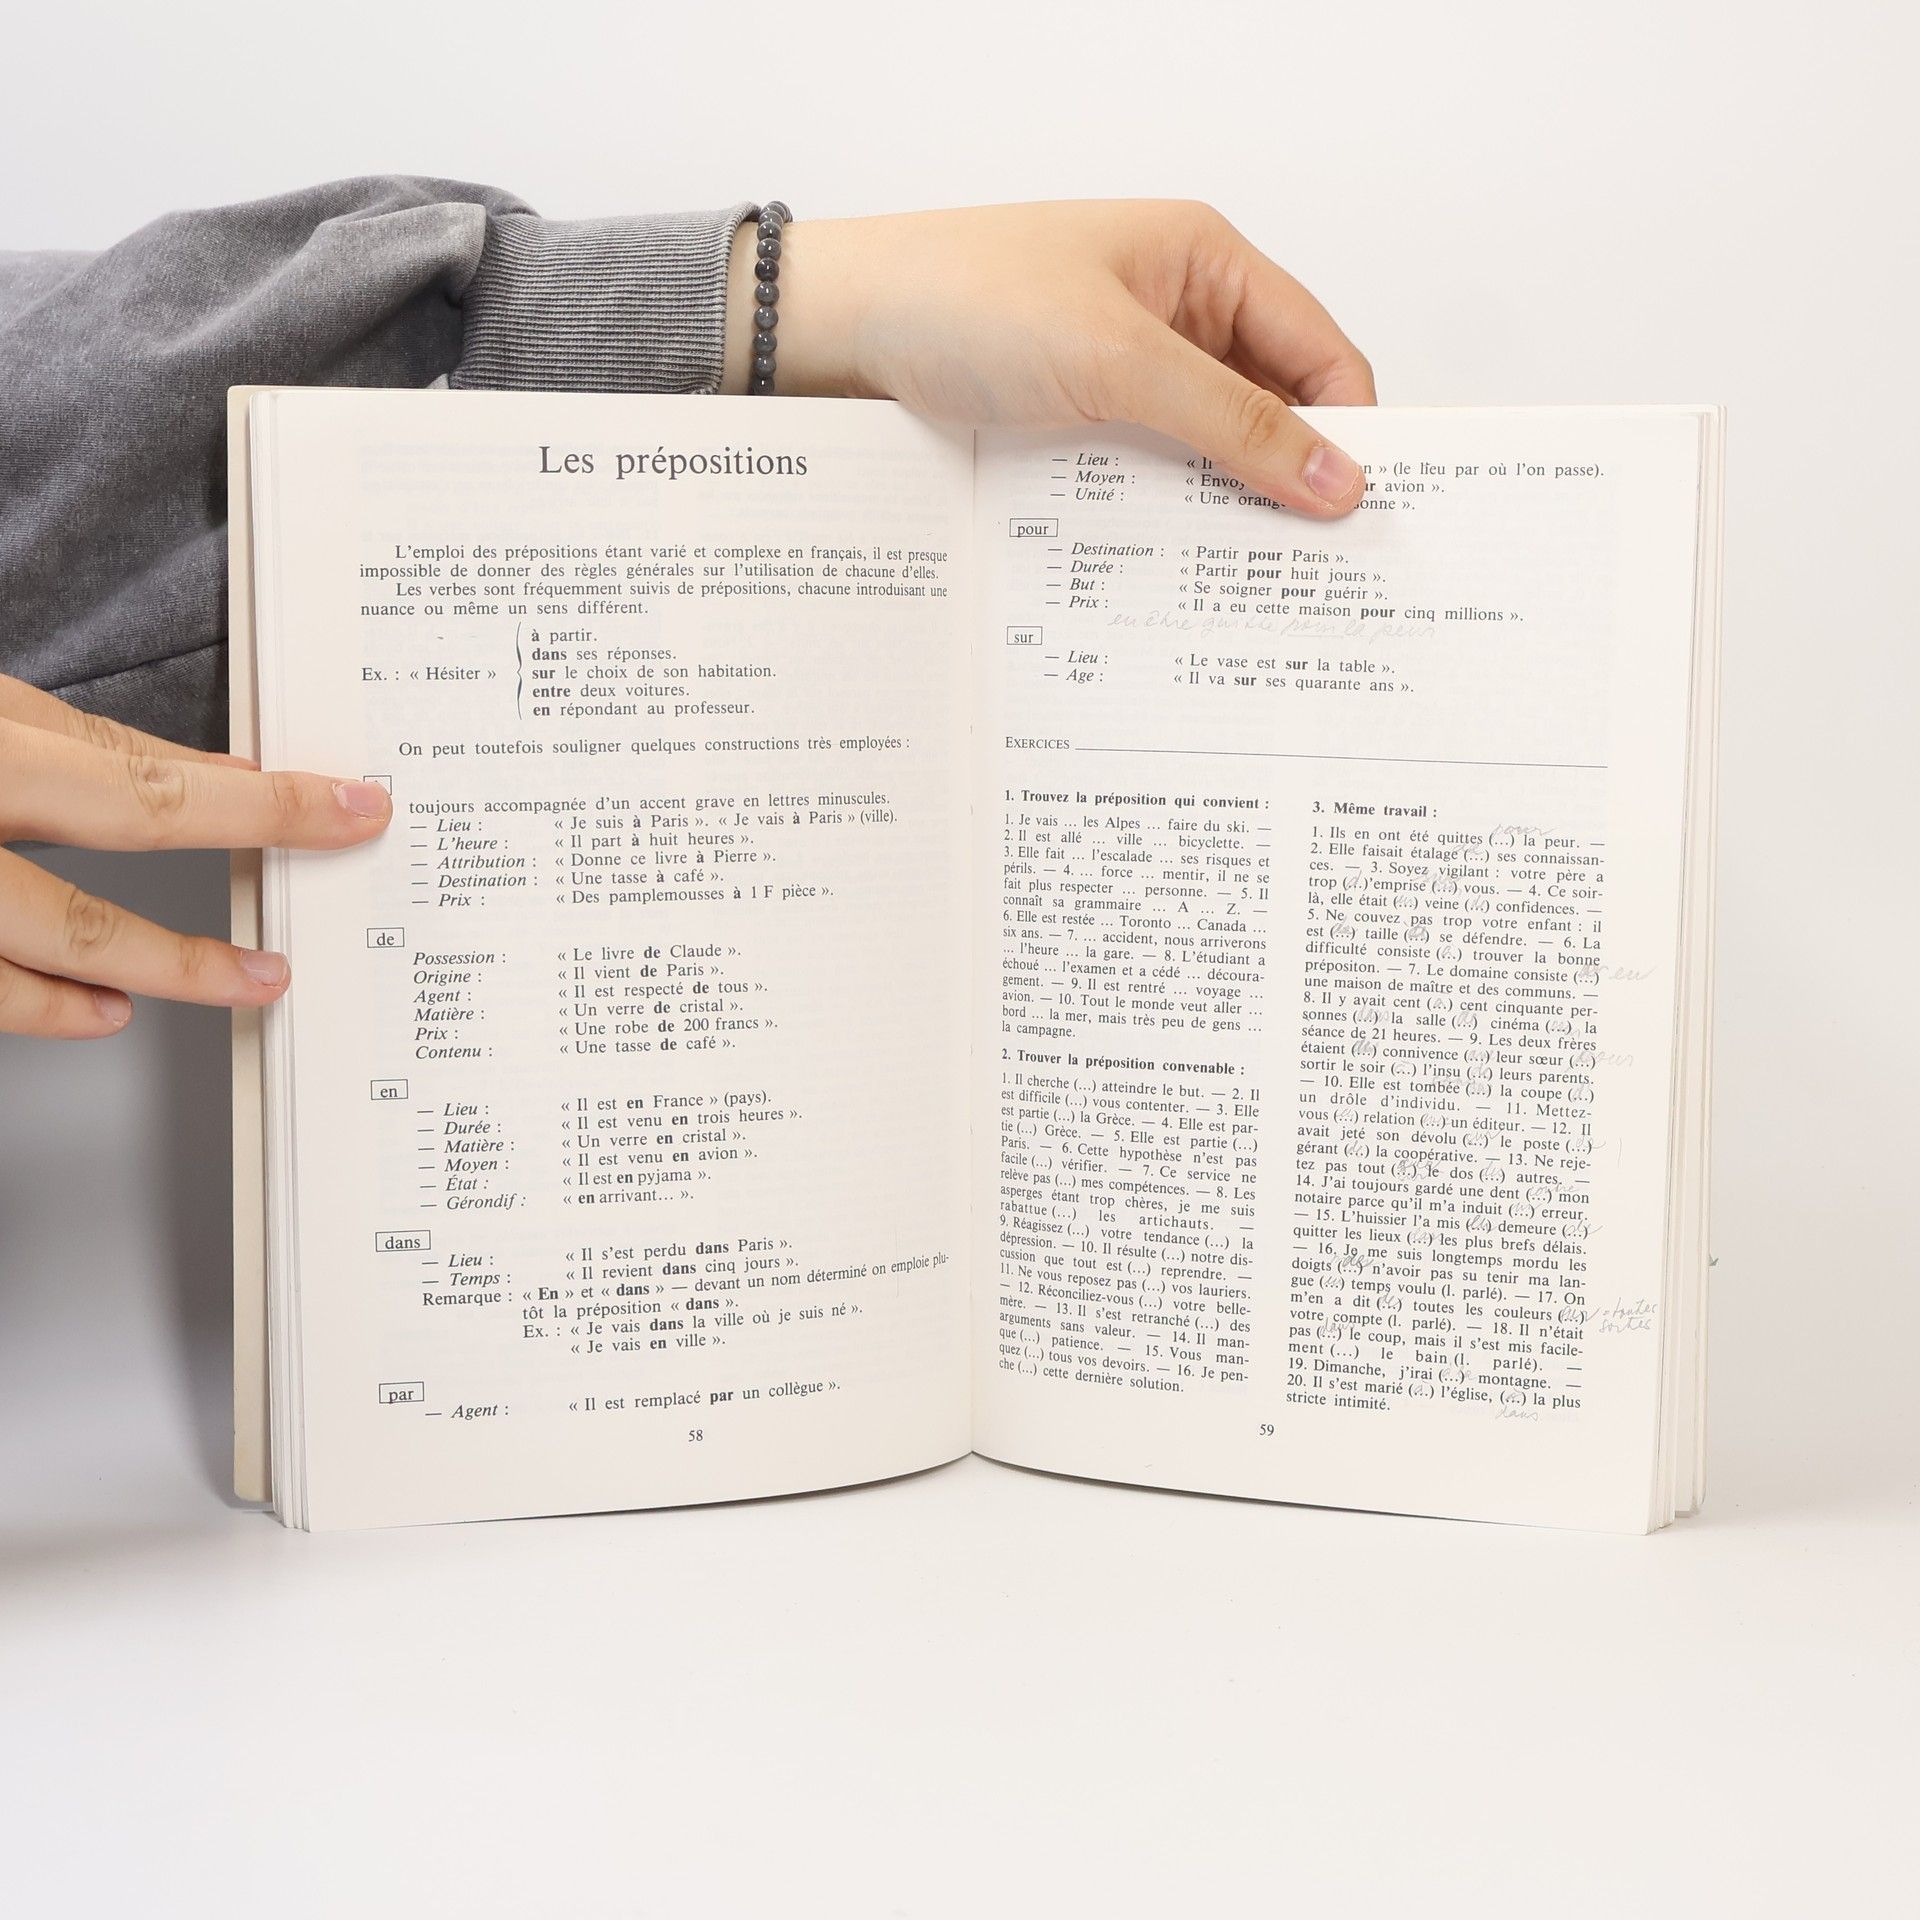 Les prépositions
L'emploi des prépositions étant varié et complexe en français, il est presque
impossible de donner des règles générales sur l'utilisation de chacune d'elles.
Les verbes sont fréquemment suivis de prépositions, chacune introduisant une
nuance ou même un sens différent.
à partir.
dans ses réponses.
Ex. : « Hésiter » sur le choix de son habitation.
entre deux voitures.
en répondant au professeur.
On peut toutefois souligner quelques constructions très employées :
toujours accompagnée d'un accent grave en lettres minuscules.
— Lieu : « Je suis à Paris ». « Je vais à Paris » (ville).
— L'heure : « Il part à huit heures ».
— Attribution : « Donne ce livre à Pierre ».
— Destination : « Une tasse à café ».
— Prix : « Des pamplemousses à 1 F pièce ».
de
Possession : « Le livre de Claude ».
Origine : « Il vient de Paris ».
Agent : « Il est respecté de tous ».
Matière : « Un verre de cristal ».
Prix : « Une robe de 200 francs ».
Contenu : « Une tasse de café ».
en
— Lieu : « Il est en France » (pays).
— Durée : « Il est venu en trois heures ».
— Matière : « Un verre en cristal ».
— Moyen : « Il est venu en avion ».
— État : « Il est en pyjama ».
— Gérondif : « en arrivant... ».
dans
— Lieu : « Il s'est perdu dans Paris ».
— Temps : « Il revient dans cinq jours ».
Remarque : « En » et « dans » — devant un nom déterminé on emploie plu-
tôt la préposition « dans ».
Ex. : « Je vais dans la ville où je suis né ».
« Je vais en ville ».
par
— Agent : « Il est remplacé par un collègue ».
58
— Lieu : « Il n » (le lieu par où l'on passe).
— Moyen : « Envoy ur avion ».
— Unité : « Une orang sonne ».
pour
— Destination : « Partir pour Paris ».
— Durée : « Partir pour huit jours ».
— But : « Se soigner pour guérir ».
— Prix : « Il a eu cette maison pour cinq millions ».
en être quitte pour la peur
sur
— Lieu : « Le vase est sur la table ».
— Age : « Il va sur ses quarante ans ».
EXERCICES
1. Trouvez la préposition qui convient :
1. Je vais ... les Alpes ... faire du ski. —
2. Il est allé ... ville ... bicyclette. —
3. Elle fait ... l'escalade ... ses risques et
périls. — 4. ... force ... mentir, il ne se
fait plus respecter ... personne. — 5. Il
connaît sa grammaire ... A ... Z. —
6. Elle est restée ... Toronto ... Canada ...
six ans. — 7. ... accident, nous arriverons
... l'heure ... la gare. — 8. L'étudiant a
échoué ... l'examen et a cédé ... découra-
gement. — 9. Il est rentré ... voyage ...
avion. — 10. Tout le monde veut aller ...
bord ... la mer, mais très peu de gens ...
la campagne.
2. Trouver la préposition convenable :
1. Il cherche (...) atteindre le but. — 2. Il
est difficile (...) vous contenter. — 3. Elle
est partie (...) la Grèce. — 4. Elle est par-
tie (...) Grèce. — 5. Elle est partie (...)
Paris. — 6. Cette hypothèse n'est pas
facile (...) vérifier. — 7. Ce service ne
relève pas (...) mes compétences. — 8. Les
asperges étant trop chères, je me suis
rabattue (...) les artichauts. —
9. Réagissez (...) votre tendance (...) la
dépression. — 10. Il résulte (...) notre dis-
cussion que tout est (...) reprendre. —
11. Ne vous reposez pas (...) vos lauriers.
— 12. Réconciliez-vous (...) votre belle-
mère. — 13. Il s'est retranché (...) des
arguments sans valeur. — 14. Il man-
que (...) patience. — 15. Vous man-
quez (...) tous vos devoirs. — 16. Je pen-
che (...) cette dernière solution.
3. Même travail :
1. Ils en ont été quittes (...) pour la peur. —
2. Elle faisait étalage (...) ses connaissan-
ces. — 3. Soyez vigilant : votre père a
trop (...)'emprise (...) vous. — 4. Ce soir-
là, elle était (...) veine (...) confidences. —
5. Ne couvez pas trop votre enfant : il
est (...) taille (...) se défendre. — 6. La
difficulté consiste (...) trouver la bonne
préposition. — 7. Le domaine consiste (...) en
une maison de maître et des communs. —
8. Il y avait cent (...) cent cinquante per-
sonnes (...) la salle (...) cinéma (...) la
séance de 21 heures. — 9. Les deux frères
étaient (...) connivence (...) leur sœur (...) pour
sortir le soir (...) l'insu (...) leurs parents.
— 10. Elle est tombée (...) la coupe (...)
un drôle d'individu. — 11. Mettez-
vous (...) relation (...) un éditeur. — 12. Il
avait jeté son dévolu (...) le poste (...)
gérant (...) la coopérative. — 13. Ne reje-
tez pas tout (...) le dos (...) autres. —
14. J'ai toujours gardé une dent (...) mon
notaire parce qu'il m'a induit (...) erreur.
— 15. L'huissier l'a mis (...) demeure (...)
quitter les lieux (...) les plus brefs délais.
— 16. Je me suis longtemps mordu les
doigts (...) n'avoir pas su tenir ma lan-
gue (...) temps voulu (l. parlé). — 17. On
m'en a dit (...) toutes les couleurs (...) = toutes
sortes
votre compte (l. parlé). — 18. Il n'était
pas (...) le coup, mais il s'est mis facile-
ment (...) le bain (l. parlé). —
19. Dimanche, j'irai (...) montagne. —
20. Il s'est marié (...) l'église, (...) la plus
stricte intimité.
dans
59